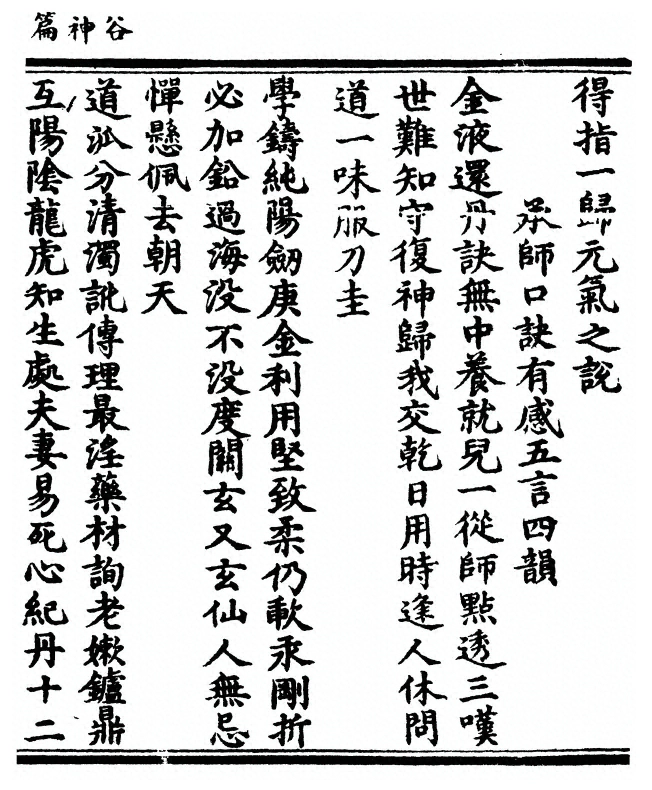 谷神篇
得指一歸元氣之說
承師口訣有感五言四韻
金液還丹訣無中養就兒一從師點透三嘆
世難知守復神歸我交乾日用時逢人休問
道一味服刀圭
學鑄純陽劒庚金利用堅致柔仍軟汞剛折
必加鉛過海没不没度關玄又玄仙人無忌
憚懸佩去朝天
道派分清濁訛傳理最淫藥材詢老嫰鑪鼎
互陽陰龍虎知生處夫妻易死心紀丹十二